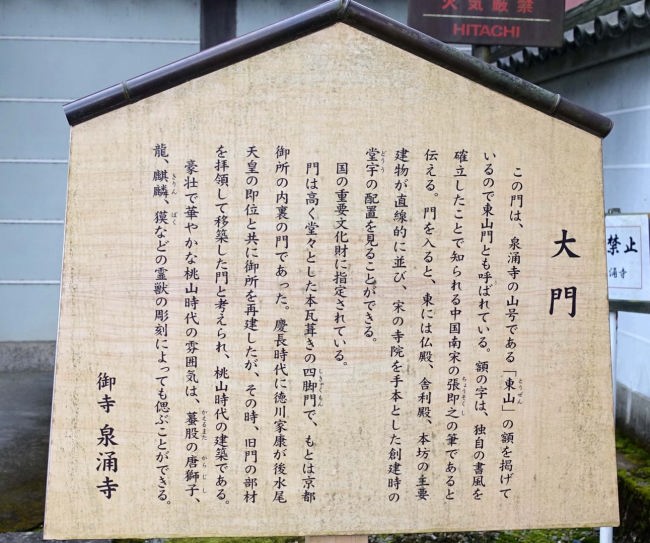 火気厳禁
HITACHI
大門
この門は、泉涌寺の山号である「東山」の額を掲げて
とうぜん
いるので東山門とも呼ばれている。額の字は、独自の書風を
確立したことで知られる中国南宋の張即之の筆であると
ちょうそくし
伝える。門を入ると、東には仏殿、舎利殿、本坊の主要
建物が直線的に並び、宋の寺院を手本とした創建時の
堂宇の配置を見ることができる。
どうう
国の重要文化財に指定されている。
門は高く堂々とした本瓦葺きの四脚門で、もとは京都
しきゃくもん
御所の内裏の門であった。慶長時代に徳川家康が後水尾
天皇の即位と共に御所を再建したが、その時、旧門の部材
を拝領して移築した門と考えられ、桃山時代の建築である。
豪壮で華やかな桃山時代の雰囲気は、蟇股の唐獅子、
かえるまた からじし
龍、麒麟、獏などの霊獣の彫刻によっても偲ぶことができる。
きりん ばく
御寺 泉涌寺
禁止
涌寺